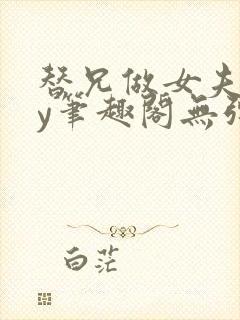 替兄做女夫
y筆趣閣無
白茫